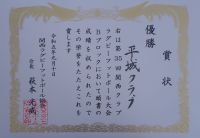 賞状
優勝
平城クラブ
右は第35回関西クラブ
ラグビーフットボール大会
Bブロックにおいて頭書の
成績を収められたので
その栄誉をたたえこれを
賞します
令和五年九月十日
関西ラグビーフットボール協会
会長 萩本光威